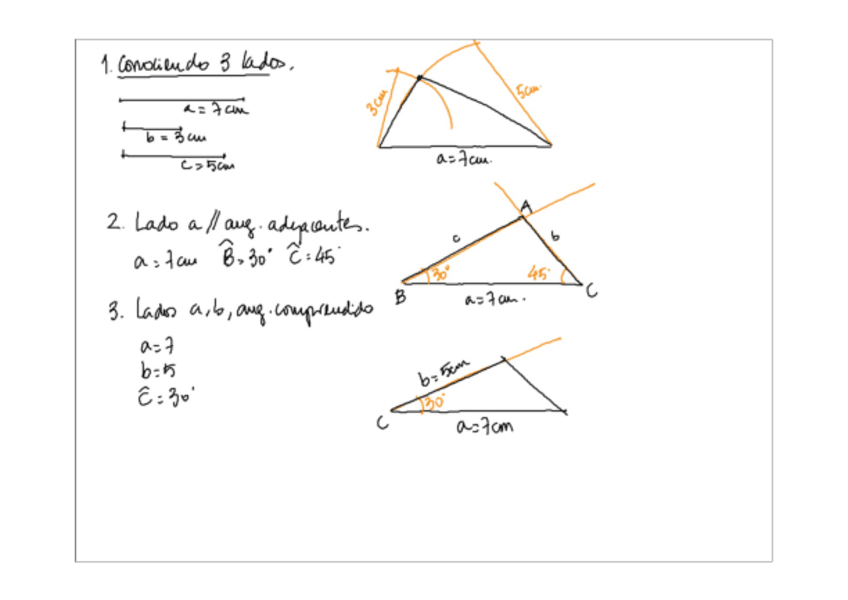 1. Conociendo 3 lados.
a = 7cm
b = 3cm
c = 5cm
3cm
5cm.
a=7cm.
2. Lado a // ang. adyacentes.
a = 7cm B̂ = 30° Ĉ = 45°
A
c
b
30°
45°
B
a=7cm.
C
3. Lados a, b, ang. comprendido
a=7
b=5
Ĉ = 30°
b=5cm
30°
C
a=7cm